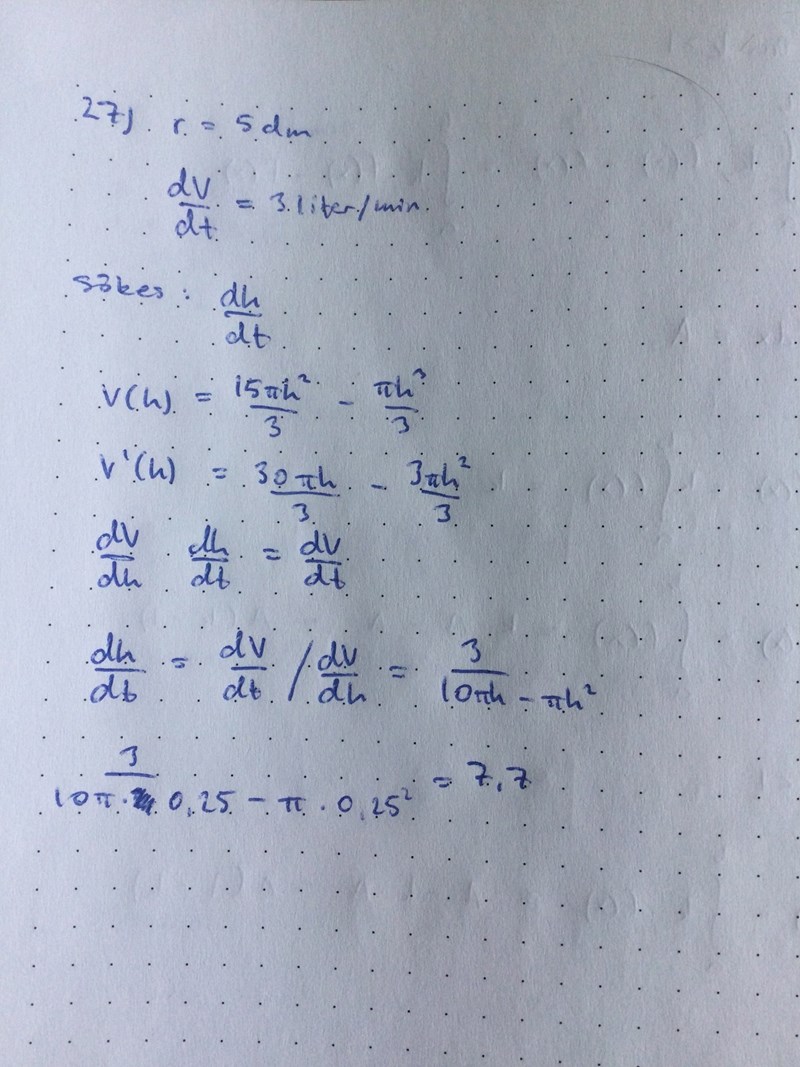 27) r = 5 dm
dV/dt = 3 liter/min.
sökes: dh/dt
V(h) = 15πh²/3 - πh³/3
V'(h) = 30πh/3 - 3πh²/3
dV/dh dh/dt = dV/dt
dh/dt = dV/dt / dV/dh = 3/10πh - πh²
3/10π · 0,25 - π · 0,25² = 7,7